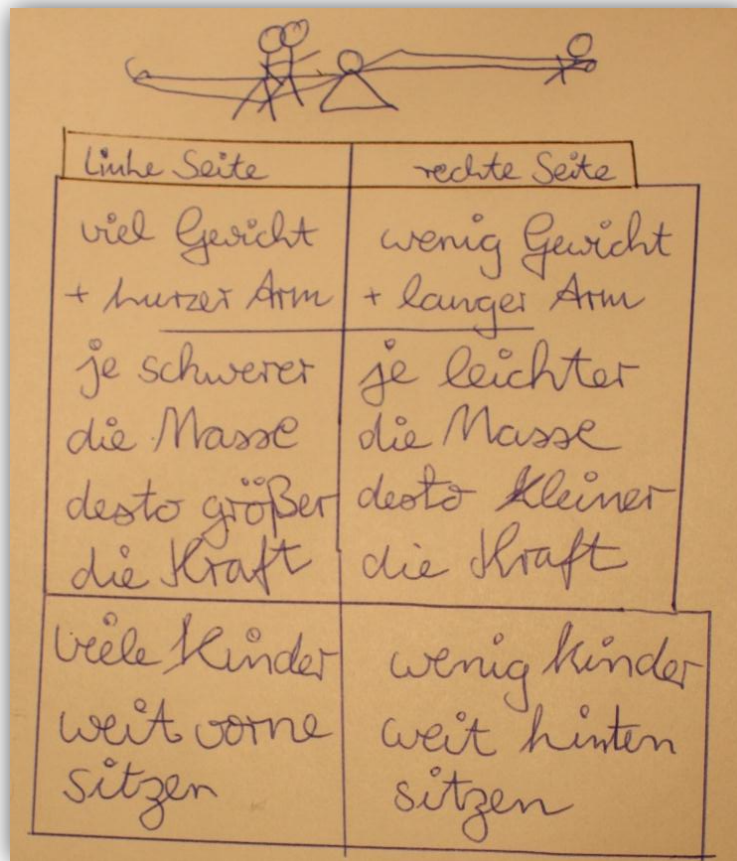 linke Seite
rechte Seite
viel Gewicht
+ kurzer Arm
wenig Gewicht
+ langer Arm
je schwerer
die Masse
desto größer
die Kraft
je leichter
die Masse
desto kleiner
die Kraft
viele Kinder
weit vorne
sitzen
wenig Kinder
weit hinten
sitzen